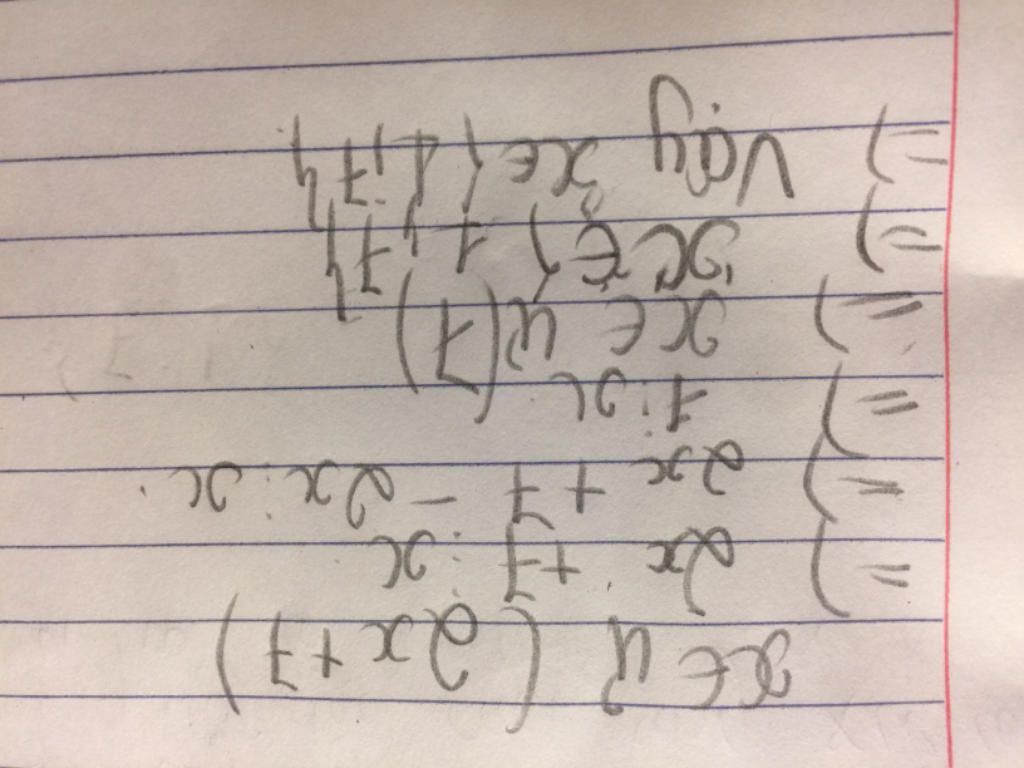 x ∈ Ư (2x + 7)
=) 2x + 7 ⋮ x
=) 2x + 7 - 2x ⋮ x
=) 7 ⋮ x
=) x ∈ Ư(7)
=) x ∈ {1; 7}
=) Vậy x ∈ {1; 7}